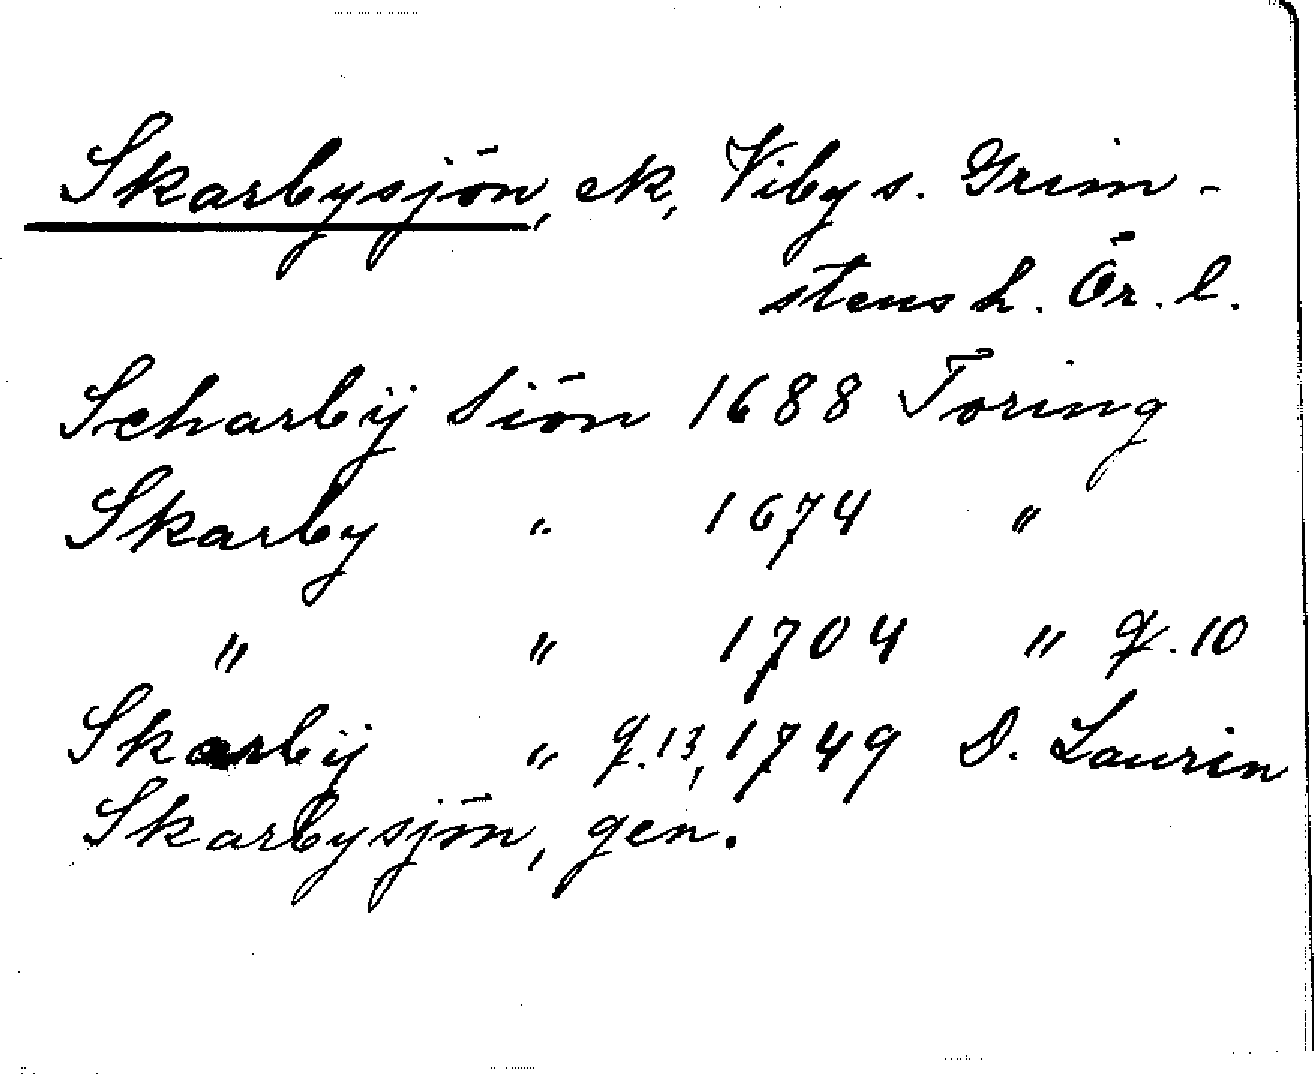 Skarbysjön, ek, Viby s. Grim-
stens h. Ör. l.
Scharbÿ Siön 1688 Toring
Skarby " 1674 "
" " 1704 " q. 10
Skarbÿ " q. 13, 1749 D. Laurin
Skarbysjön, gen.